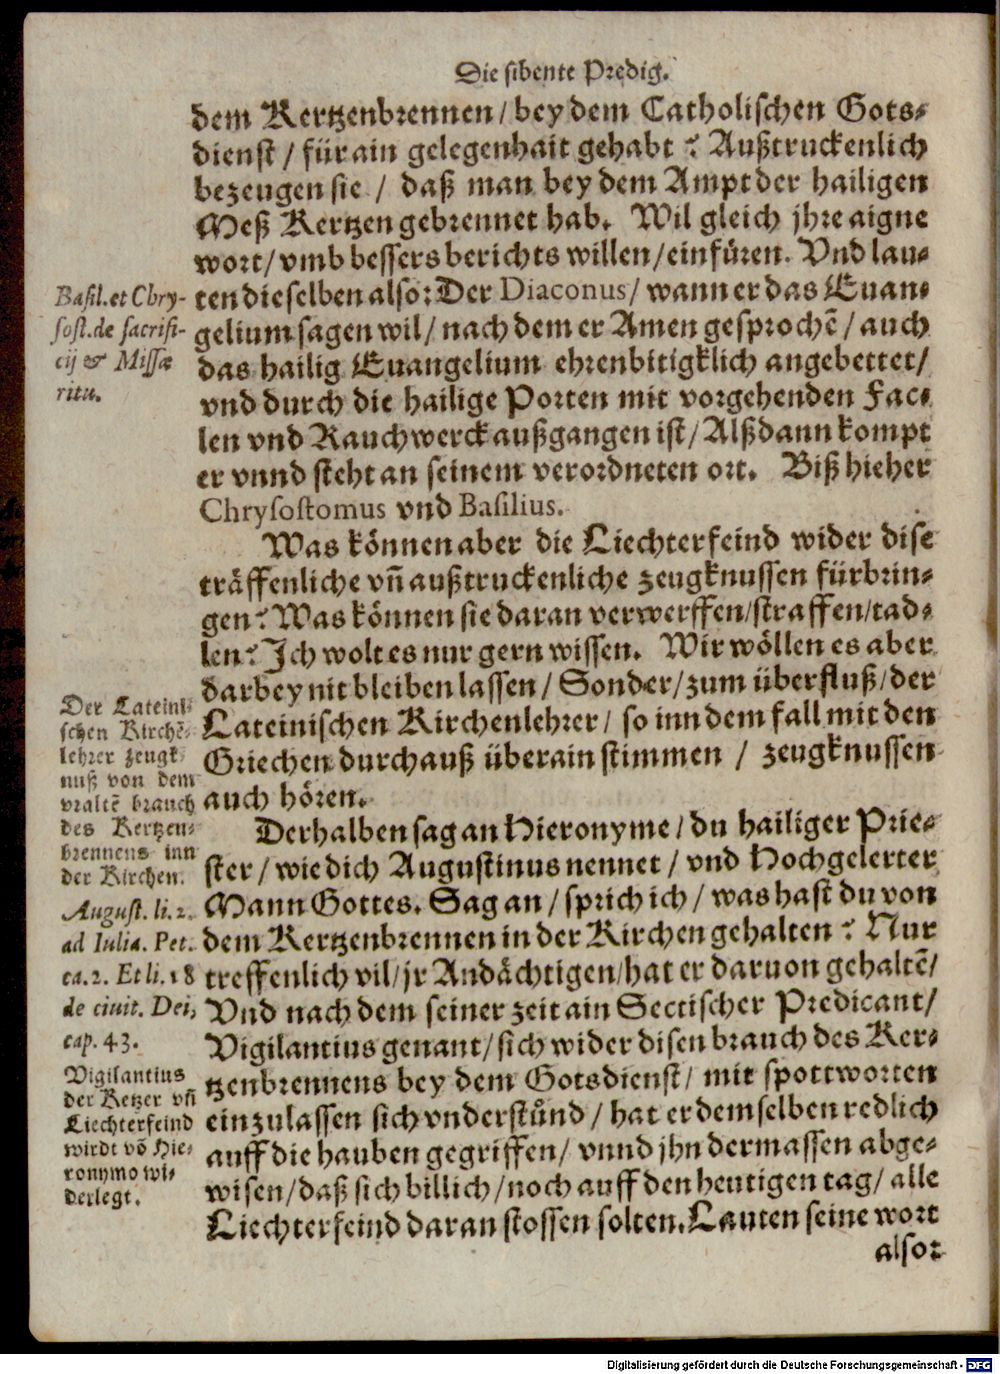 Die sibente Predig.
dem Kertzenbrennen / bey dem Catholischen Gots-
dienst / für ain gelegenhait gehabt? Außtruckenlich
bezeugen sie / daß man bey dem Ampt der hailigen
Meß Kertzen gebrennet hab. Wil gleich jhre aigne
wort / vmb bessers berichts willen / einfüren. Vnd lau-
ten dieselben also: Der Diaconus / wann er das Euan-
gelium sagen wil / nach dem er Amen gesprochẽ / auch
das hailig Euangelium ehrenbitigklich angebettet /
vnd durch die hailige Porten mit vorgehenden Fac-
len vnd Rauchwerck außgangen ist / Alßdann kompt
er vnnd steht an seinem verordneten ort. Biß hieher
Chrysostomus vnd Basilius.
Basil. et Chry-
sost. de sacrifi-
cij & Missæ
ritu.
Was können aber die Liechterfeind wider dise
träffenliche vñ außtruckenliche zeugknussen fürbrin-
gen? Was können sie daran verwerffen / straffen / tad-
len? Ich wolt es nur gern wissen. Wir wöllen es aber
darbey nit bleiben lassen / Sonder / zum überfluß / der
Lateinischen Kirchenlehrer / so inn dem fall mit den
Griechen durchauß überain stimmen / zeugknussen
auch hören.
Der Lateini-
schen Kirchẽ-
lehrer zeugk-
nuß von dem
vraltẽ brauch
des Kertzen-
brennens inn
der Kirchen.
Derhalben sag an Hieronyme / du hailiger Prie-
ster / wie dich Augustinus nennet / vnd Hochgelerter
Mann Gottes. Sag an / sprich ich / was hast du von
dem Kertzenbrennen in der Kirchen gehalten? Nur
treffenlich vil / jr Andächtigen / hat er daruon gehaltẽ /
Vnd nach dem seiner zeit ain Sectischer Predicant /
Vigilantius genant / sich wider disen brauch des Ker-
tzenbrennens bey dem Gotsdienst / mit spottworten
einzulassen sich vnderstůnd / hat er demselben redlich
auff die hauben gegriffen / vnnd jhn dermassen abge-
wisen / daß sich billich / noch auff den heutigen tag / alle
Liechterfeind daran stossen solten. Lauten seine wort
also:
August. li. 2.
ad Iulia. Pet.
ca. 2. Et li. 18
de ciuit. Dei,
cap. 43.
Vigilantius
der Ketzer vñ
Liechterfeind
wirdt võ Hie-
ronymo wi-
derlegt.
Digitalisierung gefördert durch die Deutsche Forschungsgemeinschaft - DFG